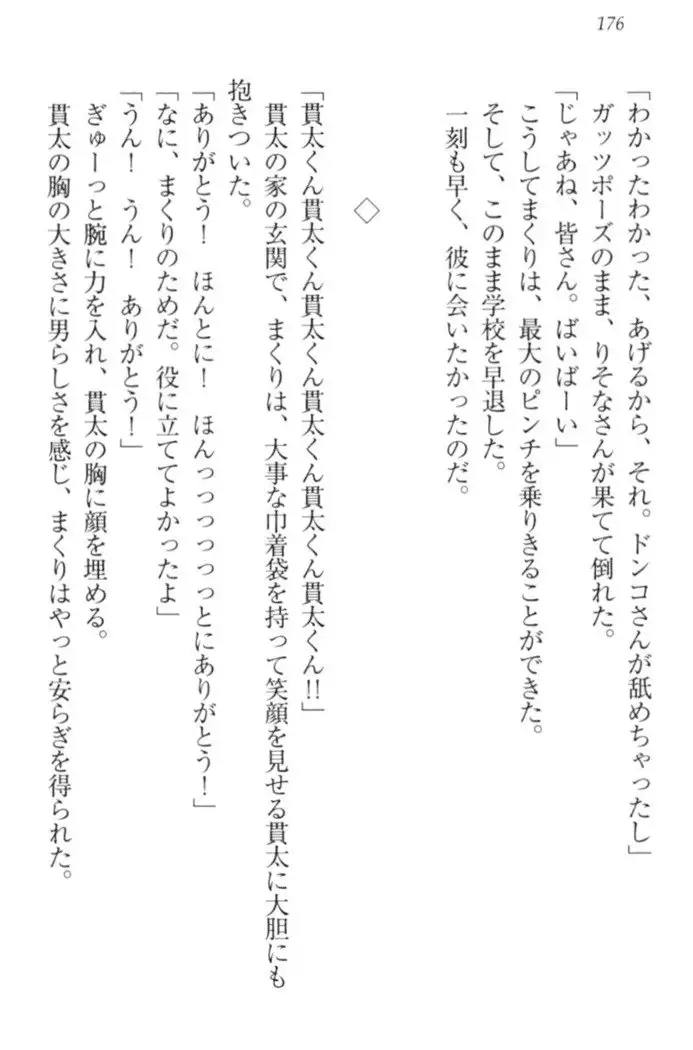 176
「わかったわかった、あげるから、それ。ドンコさんが舐めちゃったし」
ガッツポーズのまま、りそなさんが果てて倒れた。
「じゃあね、皆さん。ばいばーい」
こうしてまくりは、最大のピンチを乗りきることができた。
そして、このまま学校を早退した。
一刻も早く、彼に会いたかったのだ。
◇
「貫太くん貫太くん貫太くん貫太くん貫太くん貫太くん!!」
貫太の家の玄関で、まくりは、大事な巾着袋を持って笑顔を見せる貫太に大胆にも
抱きついた。
「ありがとう!　ほんとに!　ほんっっっっっっとにありがとう!」
「なに、まくりのためだ。役に立ててよかったよ」
「うん!　うん!　ありがとう!」
ぎゅーっと腕に力を入れ、貫太の胸に顔を埋める。
貫太の胸の大きさに男らしさを感じ、まくりはやっと安らぎを得られた。